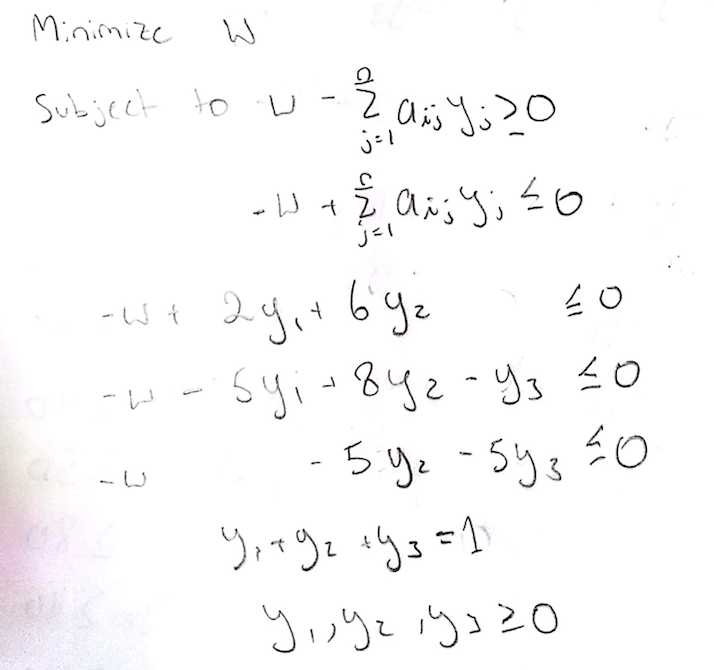 Minimize W
Subject to w - ∑_{j=1}^{n} a_{ij} y_j ≥ 0
-w + ∑_{j=1}^{n} a_{ij} y_j ≤ 0
-w + 2y_1 + 6y_2 ≤ 0
-w - 5y_1 + 8y_2 - y_3 ≤ 0
-w - 5y_2 - 5y_3 ≤ 0
y_1 + y_2 + y_3 = 1
y_1, y_2, y_3 ≥ 0